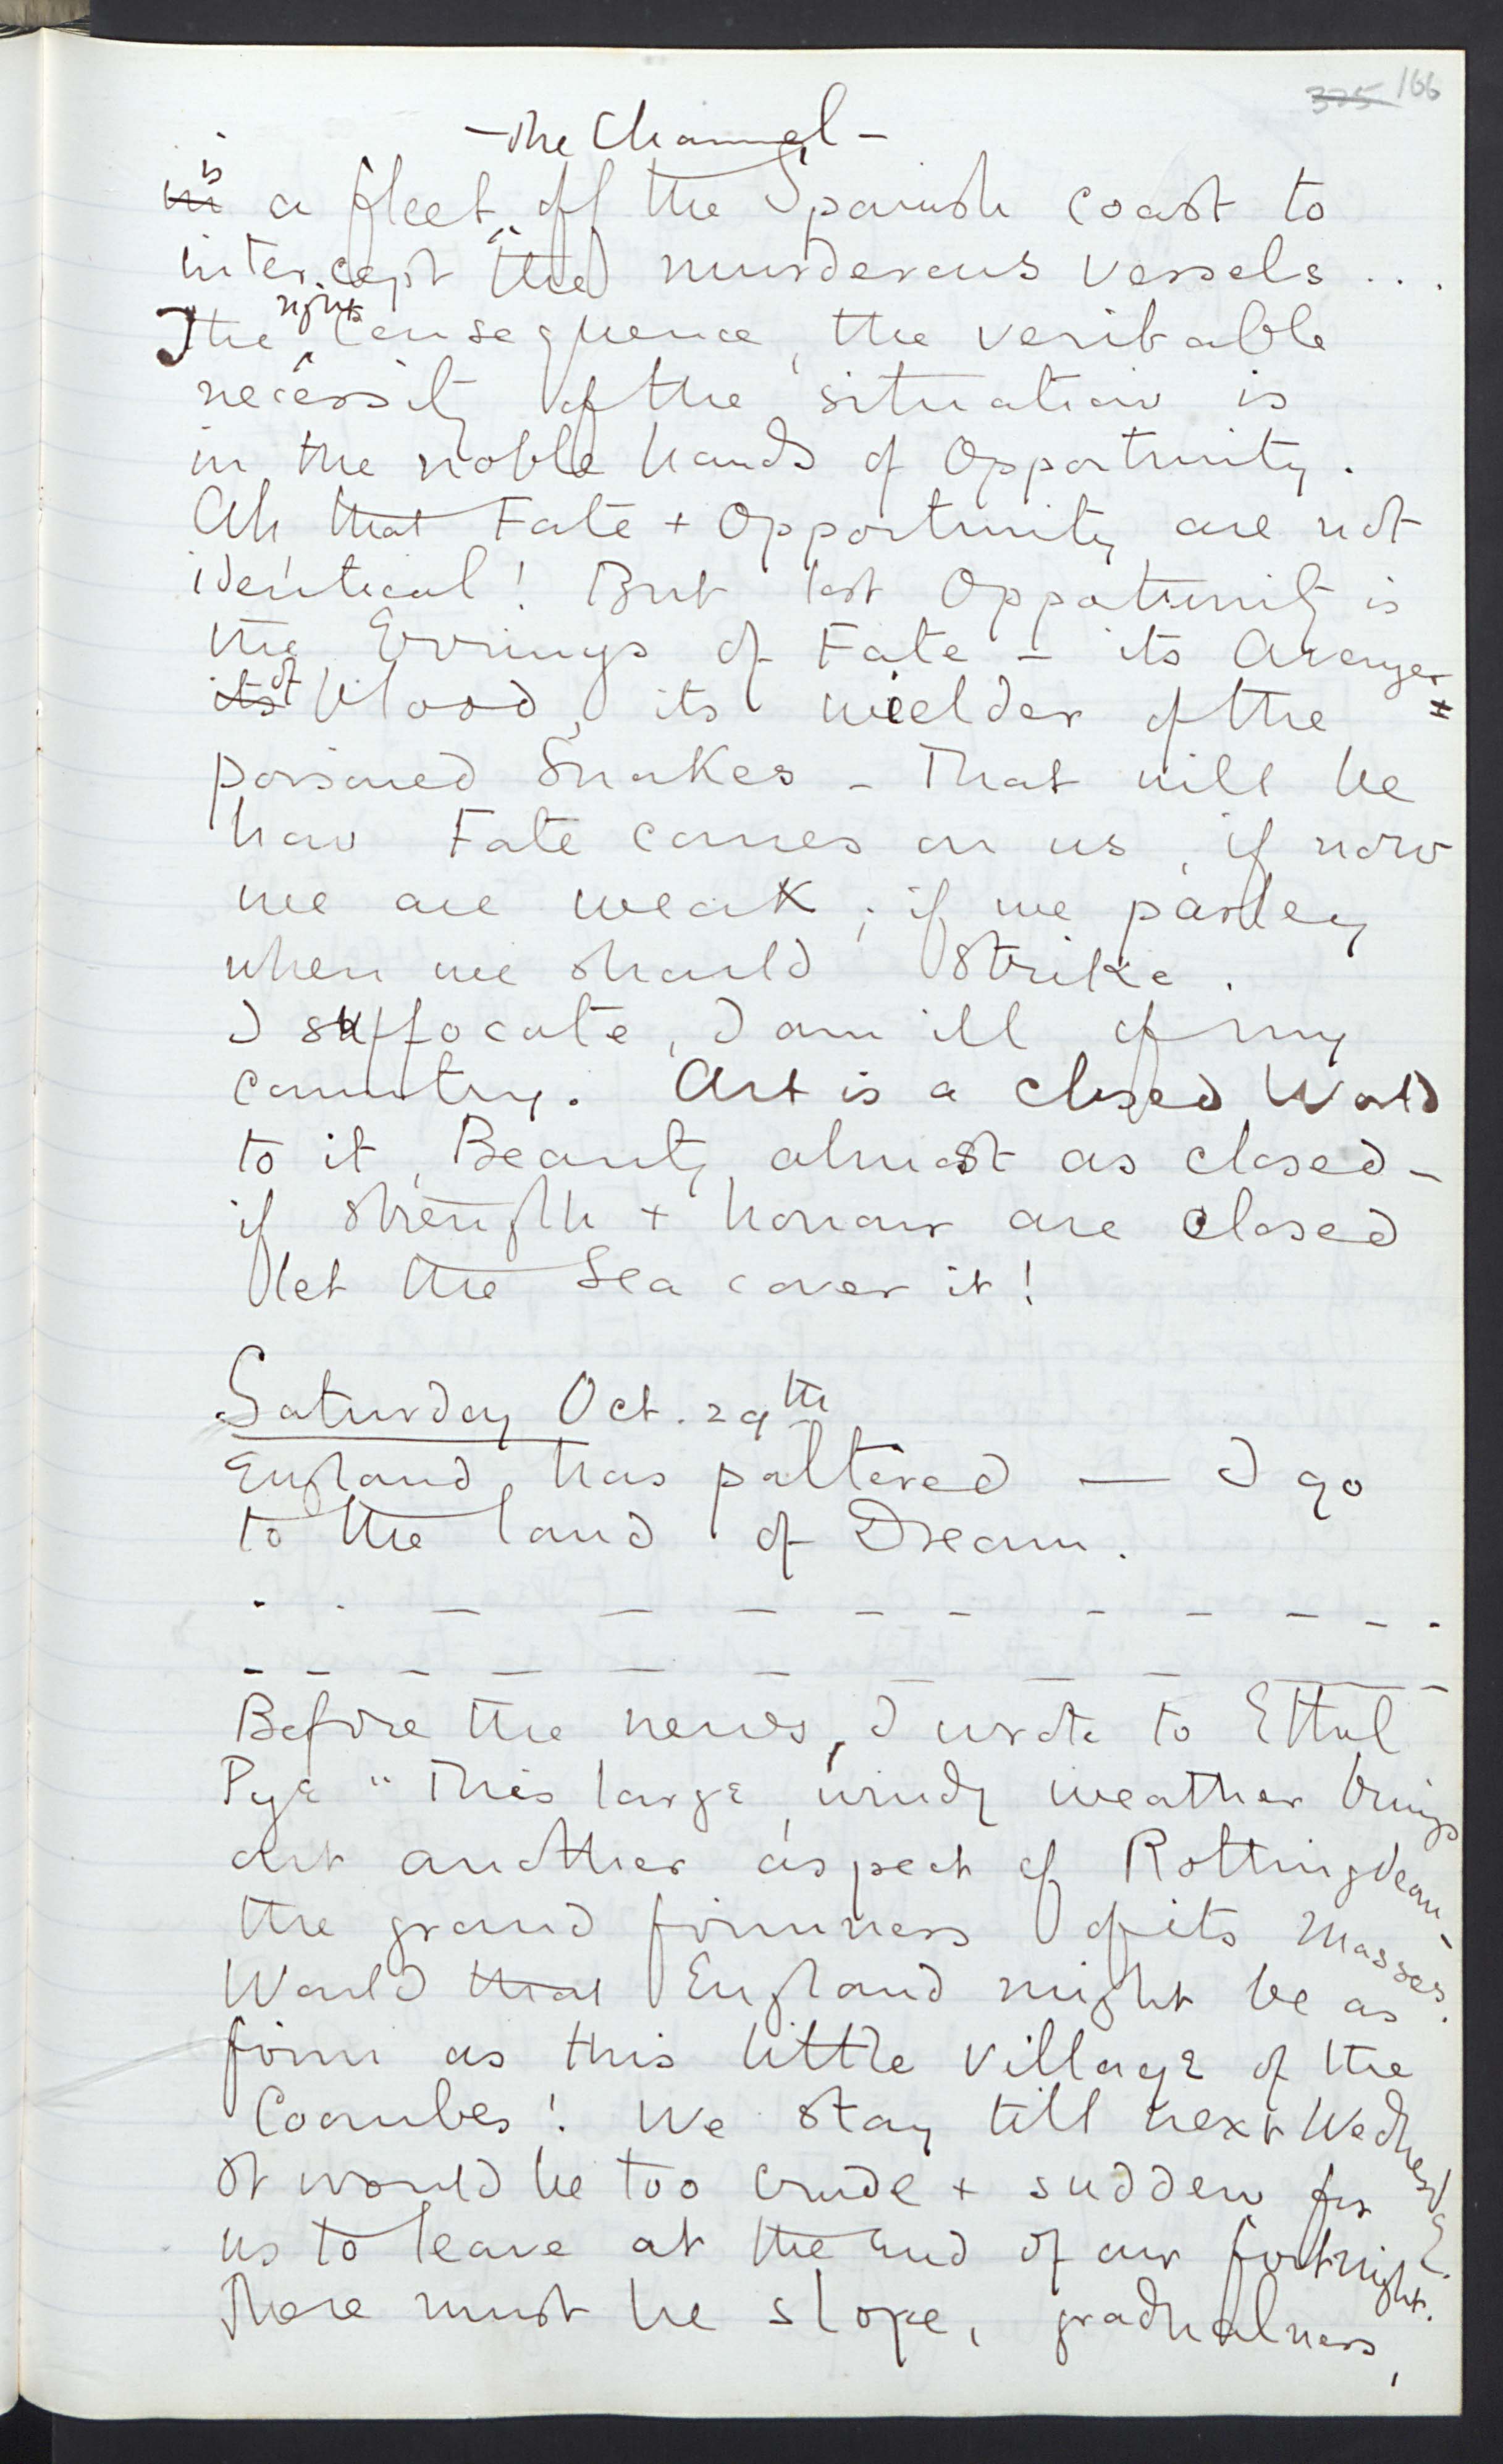 325 166
- The Channel -
is
in a fleet off the Spanish coast to
intercept the murderous vessels ...
right
The consequence, the veritable
necessity of the situation is
in the noble hands of Opportunity.
Ah that Fate + Opportunity are not
identical! But lost Opportunity is
the Erinnys of Fate - its Avenger
its of blood, its wielder of the
poisoned Snakes - That will be
how Fate comes on us, if now
we are weak; if we parley
when we should Strike.
I suffocate, I am ill of my
country. Art is a closed World
to it, Beauty almost as closed -
if strength + honour are closed
let the Sea cover it!
Saturday Oct. 29th
England has paltered — I go
to the land of Dream.
Before the news, I wrote to Ethel
Pye "This large, windy weather brings
out another aspect of Rottingdean -
the grand firmness of its masses.
Would that England might be as
firm as this little village of the
Coombes! We stay till next Wednesday.
It would be too crude + sudden for
us to leave at the end of our fortnight.
There must be slope, gradualness,